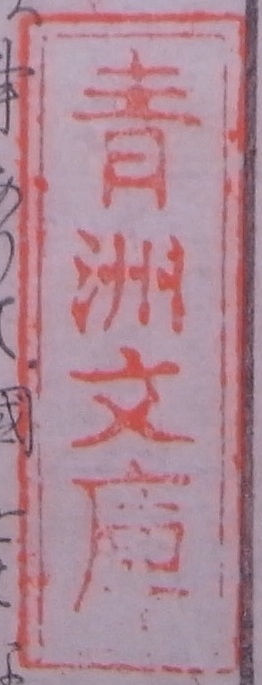 青洲文庫
國